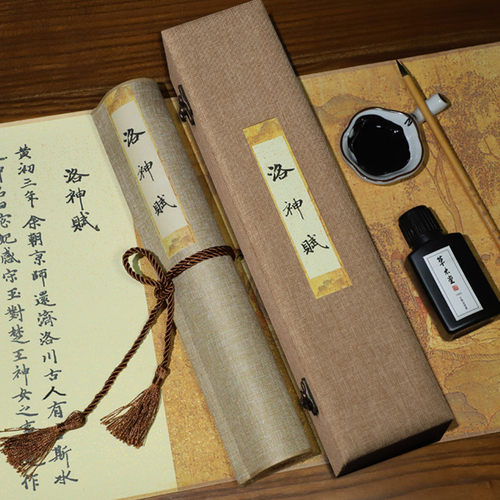 洛神賦
黃初三年余朝京師還濟洛川古人有斯水
名曰宓妃感宋玉對楚王神女之作
洛神賦
洛神賦